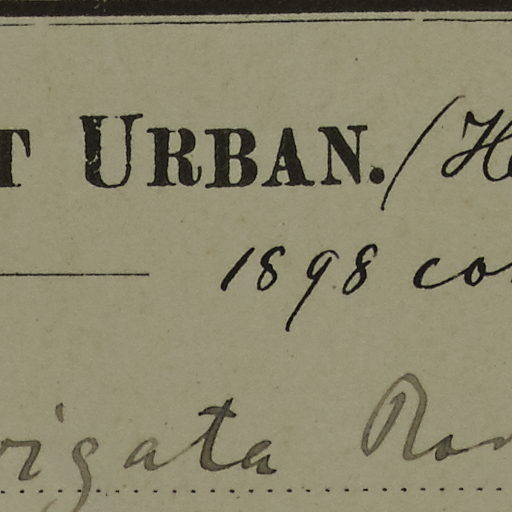 T URBAN. (H
1898 co
rigata Ro